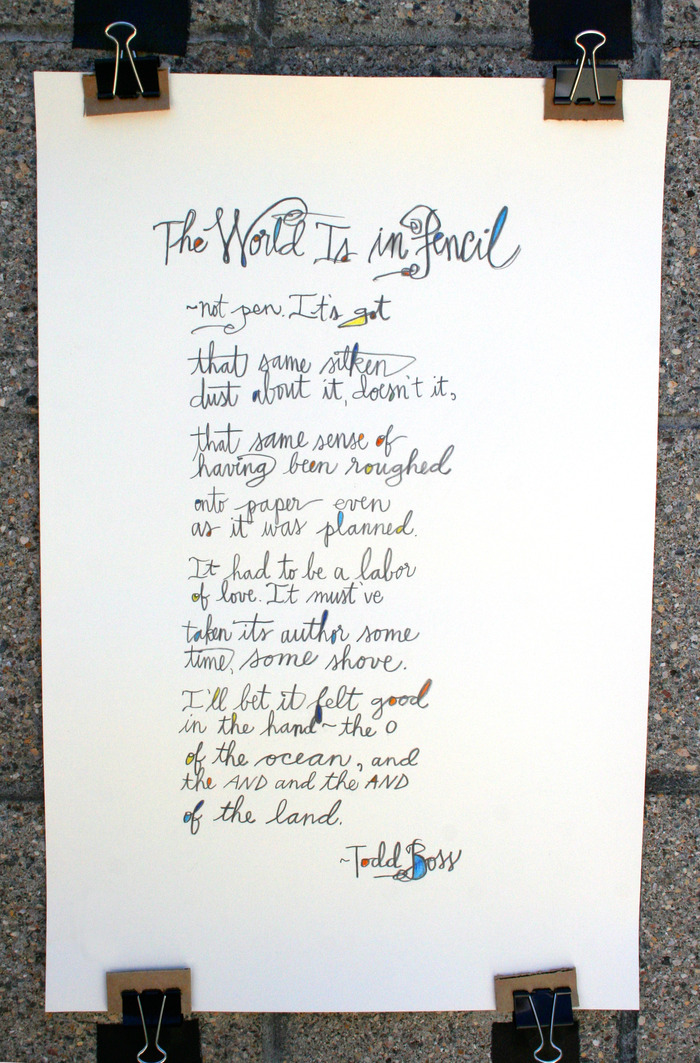 The World Is in Pencil
~not pen. It's got
that same silken
dust about it, doesn't it,
that same sense of
having been roughed
onto paper even
as it was planned.
It had to be a labor
of love. It must've
taken its author some
time, some shove.
I'll bet it felt good
in the hand~the O
of the ocean, and
the AND and the AND
of the land.
~Todd Boss